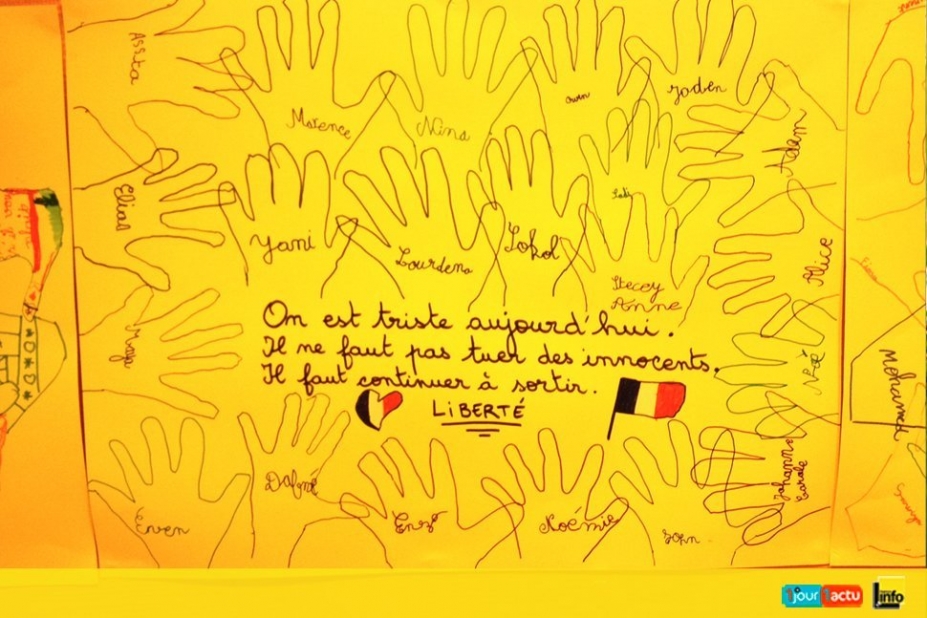 Assta
Morence
Nina
Owen
Joden
Adam
Elias
Yani
Lourdena
Sokol
Sadi
Stecey
Anne
Alice
On est triste aujourd'hui.
Il ne faut pas tuer des innocents.
Il faut continuer à sortir.
LIBERTÉ
Noé
Mohamed
Dafné
Johanna
Carole
Erven
Enzo
Noémie
John
1jour1actu
info